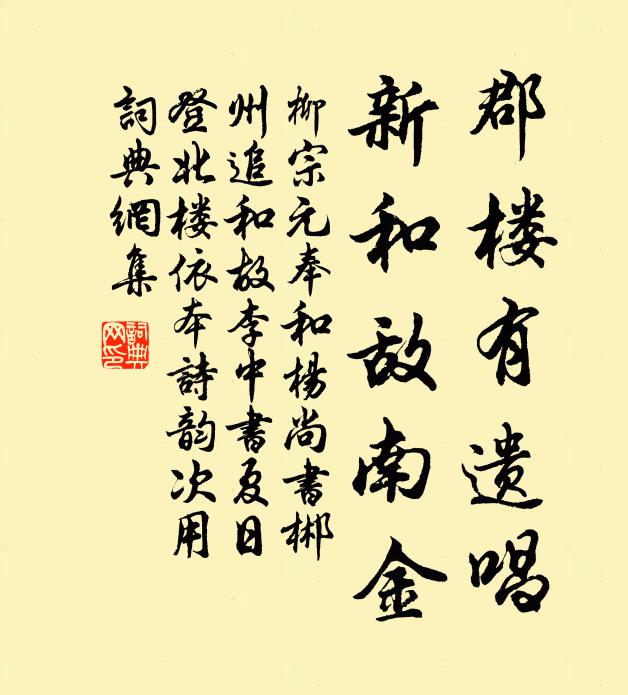 郡楼有遗唱
新和敌南金
柳宗元奉和楊尚書郴
州追和故李中書夏日
登北楼依本詩韵次用
詞典網集
詞典网印